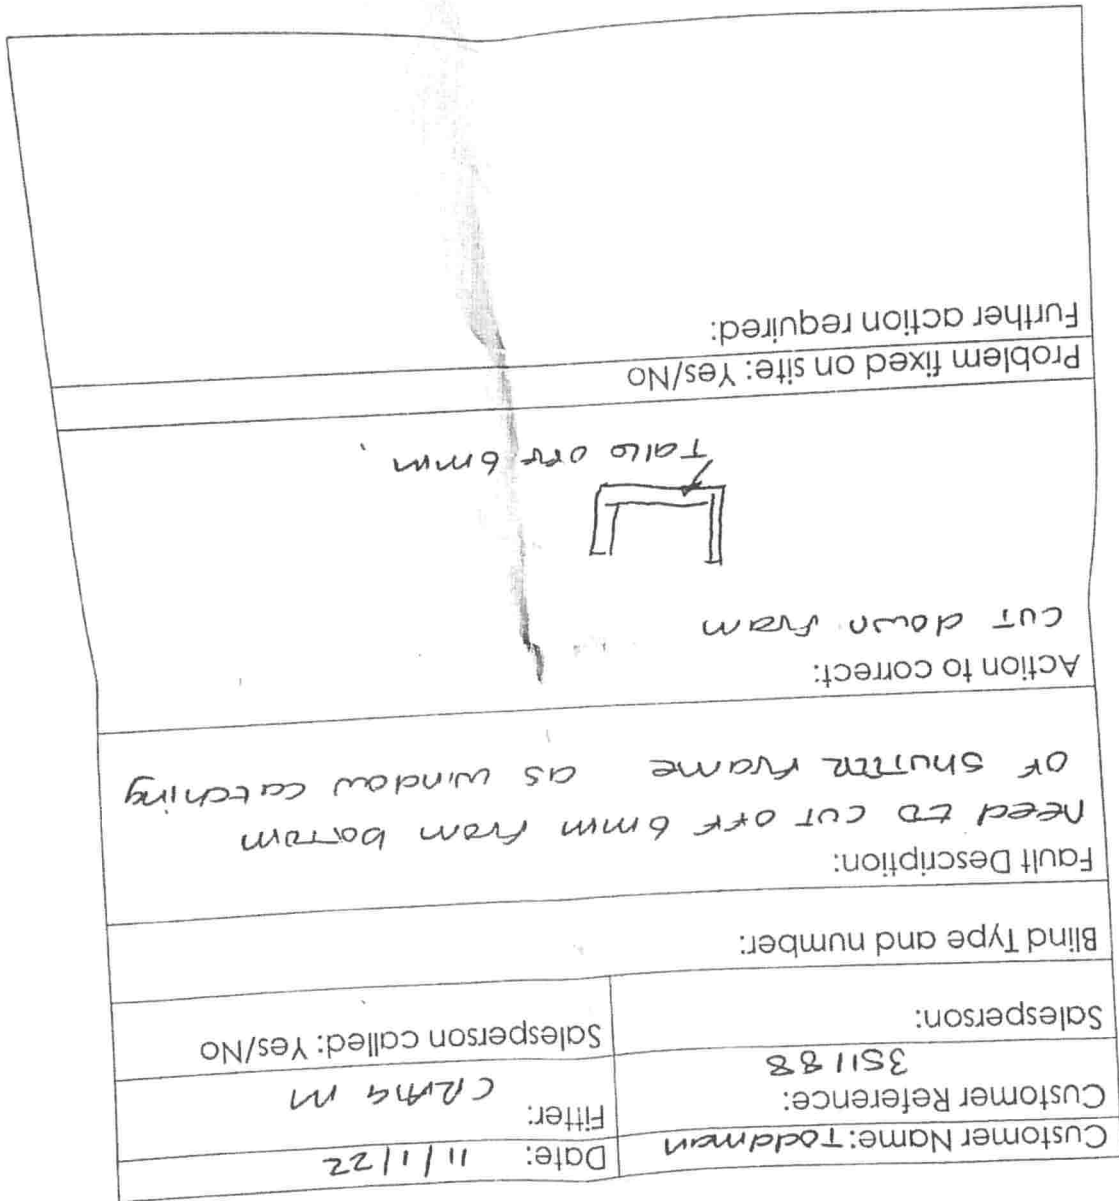 Customer Name: Toddman
Date: 11/1/22
Customer Reference:
351188
Fitter: CRAIG M
Salesperson:
Salesperson called: Yes/No
Blind Type and number:
Fault Description:
Need to cut off 6mm from bottom
of shutter frame as window catching
Action to correct:
cut down fram
Take off 6mm
Problem fixed on site: Yes/No
Further action required: